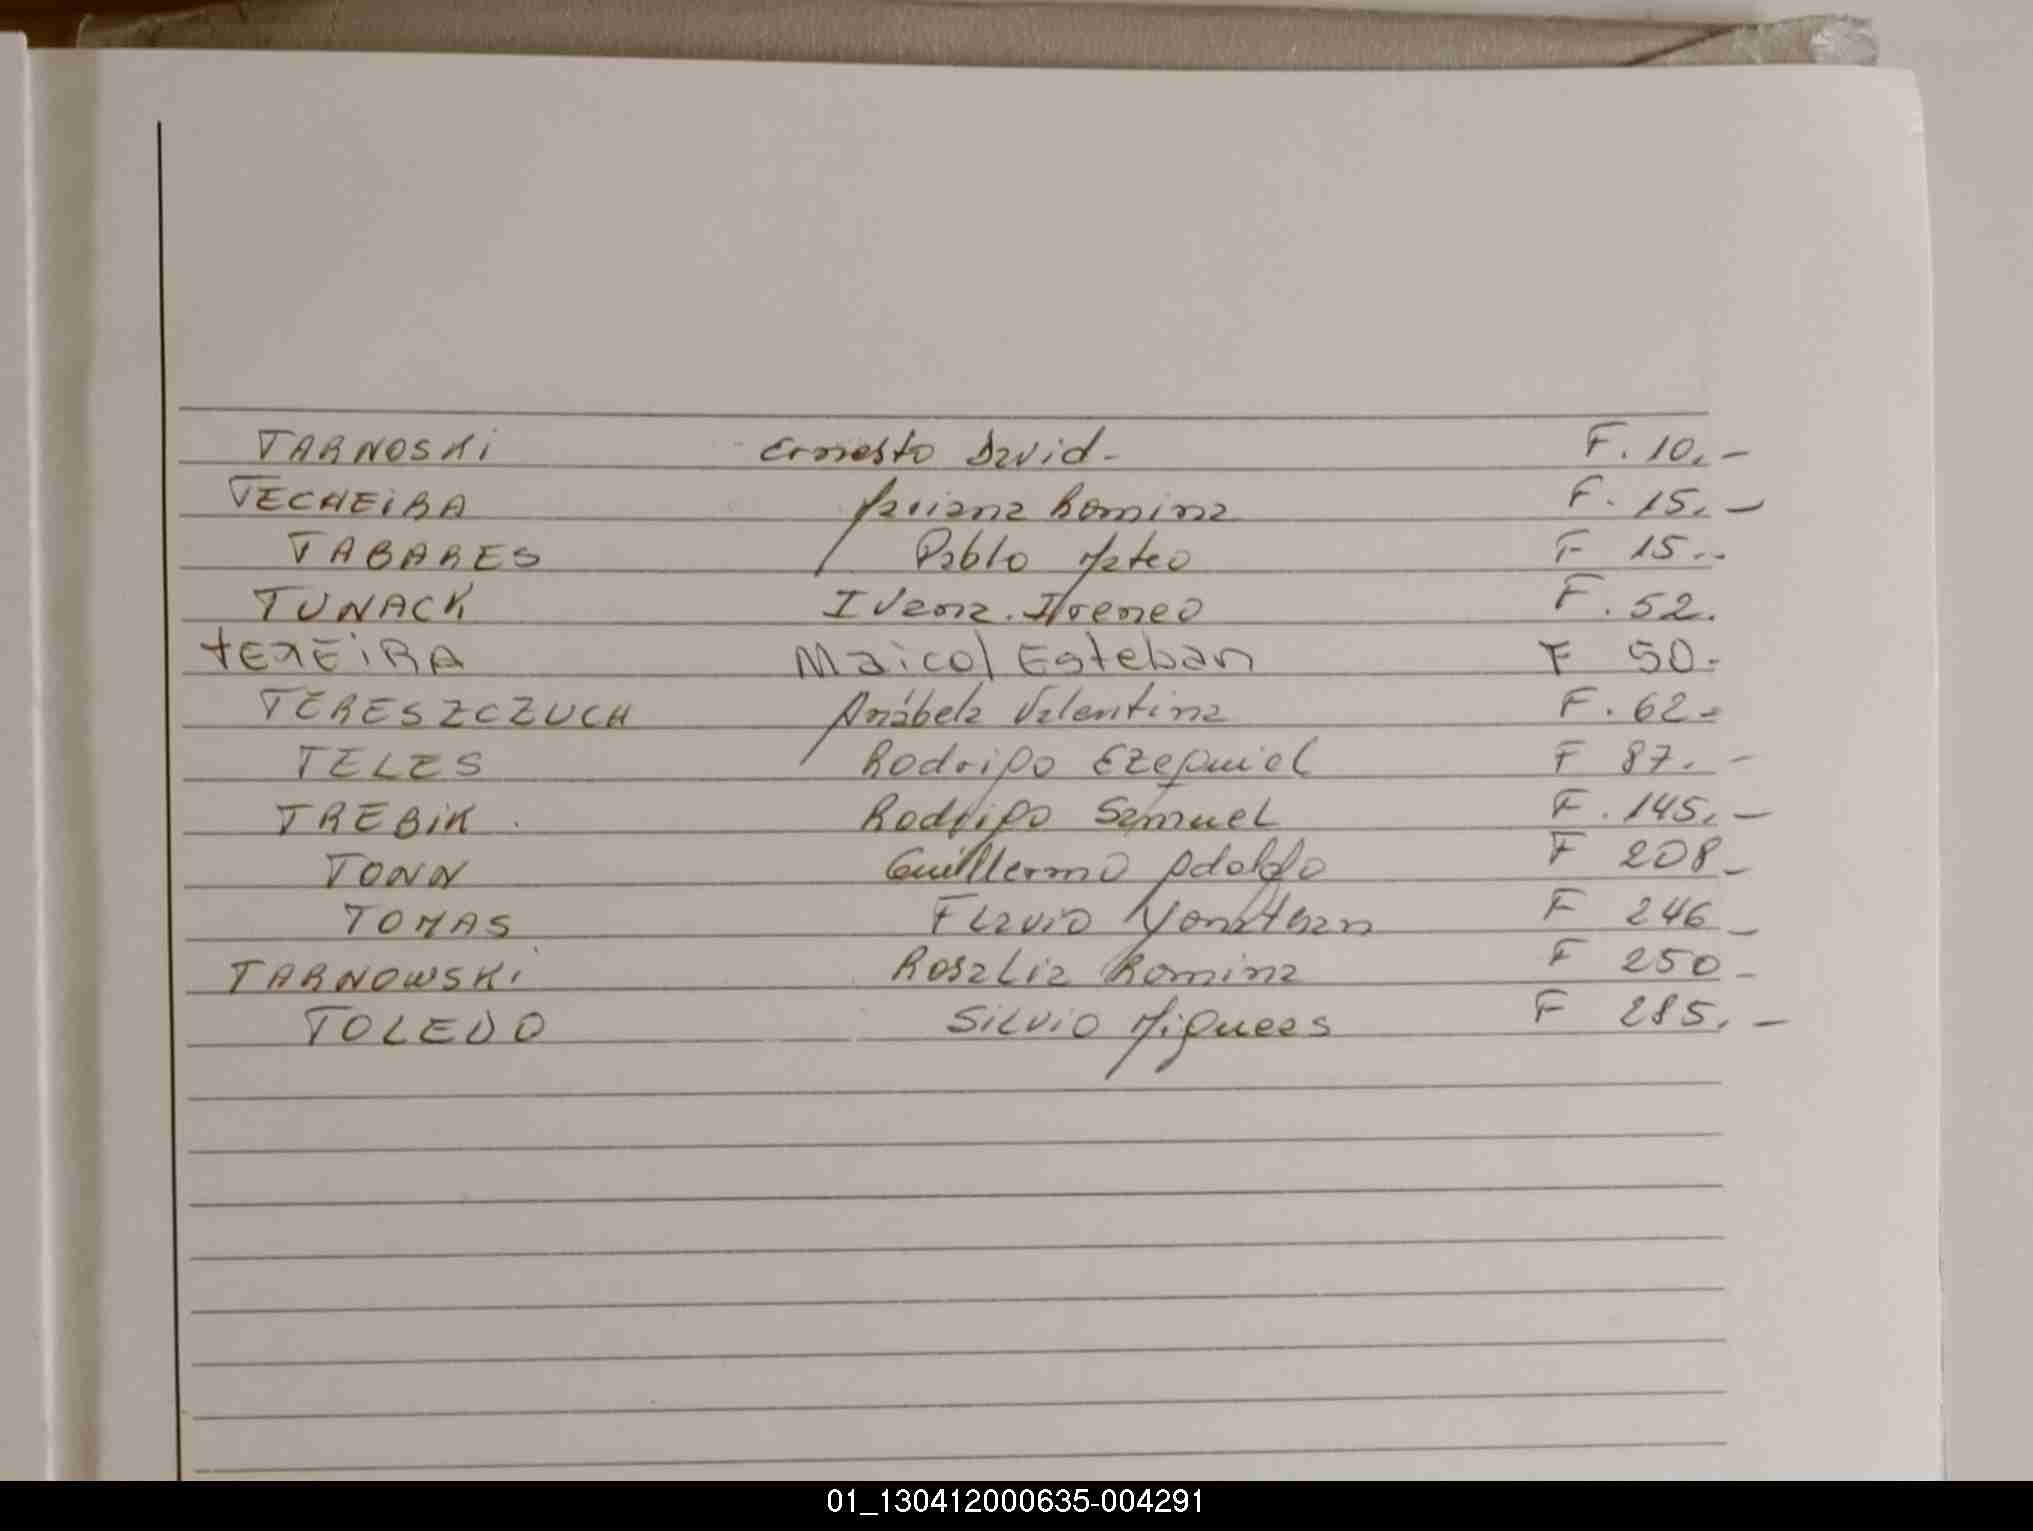 TARNOSKi Ernesto David- F. 10.-
TECHEiRA Mariana Romina F. 15.-
TABARES Pablo Mateo F 15..
TUNACK Ivana. Ireneo F. 52.
tEXEiRA Maicol Esteban F 50.
TERESZCZUCH Anábela Valentina F. 62-
TELES Rodrigo Ezequiel F 87.-
TREBiK. Rodrigo Samuel F. 145.-
TONN Guillermo Adolfo F 208-
TOMAS Flavio Yonathan F 246-
TARNOWSKi Rosalia Romina F 250-
TOLEDO Silvio F 285.-
01_130412000635-004291